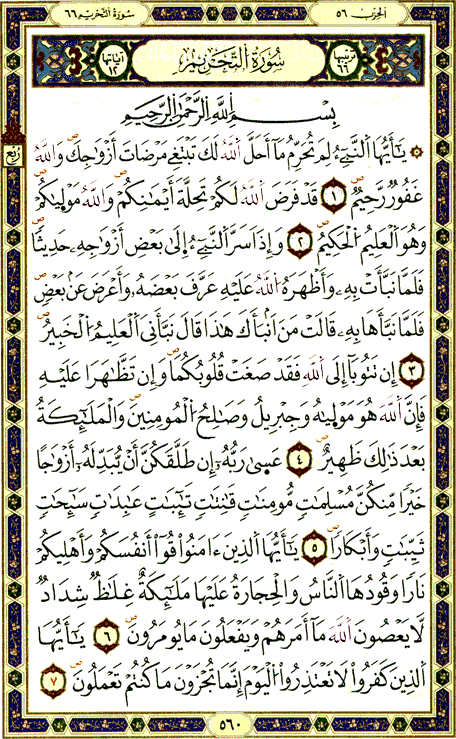 الحزب ٥٦ سورة التحريم ٦٦
ترتيبها ٦٦ سُورَةُ التَّحْرِيمِ آياتها ١٢
بِسْمِ اللَّهِ الرَّحْمَٰنِ الرَّحِيمِ
۞ يَٰٓأَيُّهَا اَلنَّبِےٓءُ لِمَ تُحَرِّمُ مَآ أَحَلَّ اَللَّهُ لَكَ تَبْتَغِے مَرْضَاتَ أَزْوَٰجِكَ وَاللَّهُ
ربع
غَفُورٌ رَّحِيمٌ ١ قَدْ فَرَضَ اَللَّهُ لَكُمْ تَحِلَّةَ أَيْمَٰنِكُمْ وَاللَّهُ مَوْلَيٰكُمْ
وَهُوَ اَلْعَلِيمُ اُلْحَكِيمُ ٢ وَإِذَ اَسَرَّ اَلنَّبِےٓءُ اِلَىٰ بَعْضِ أَزْوَٰجِهِۦ حَدِيثاً
فَلَمَّا نَبَّأَتْ بِهِۦ وَأَظْهَرَهُ اُللَّهُ عَلَيْهِ عَرَّفَ بَعْضَهُۥ وَأَعْرَضَ عَنۢ بَعْضٍ
فَلَمَّا نَبَّأَهَا بِهِۦ قَالَتْ مَنَ اَنۢبَأَكَ هَٰذَا قَالَ نَبَّأَنِيَ اَلْعَلِيمُ اُلْخَبِيرُ
٣ إِن تَتُوبَآ إِلَى اَللَّهِ فَقَدْ صَغَتْ قُلُوبُكُمَا وَإِن تَظَّٰهَرَا عَلَيْهِ
فَإِنَّ اَللَّهَ هُوَ مَوْلَيٰهُ وَجِبْرِيلُ وَصَٰلِحُ اُلْمُومِنِينَ وَالْمَلَٰٓئِكَةُ
بَعْدَ ذَٰلِكَ ظَهِيرٌ ٤ عَسَىٰ رَبُّهُۥٓ إِن طَلَّقَكُنَّ أَنْ يُّبَدِّلَهُۥٓ أَزْوَٰجاً
خَيْراً مِّنكُنَّ مُسْلِمَٰتٍ مُّومِنَٰتٍ قَٰنِتَٰتٍ تَٰٓئِبَٰتٍ عَٰبِدَٰتٍ سَٰٓئِحَٰتٍ
ثَيِّبَٰتٍ وَأَبْكَاراً ٥ يَٰٓأَيُّهَا اَلذِينَ ءَامَنُواْ قُوٓاْ أَنفُسَكُمْ وَأَهْلِيكُمْ
نَاراً وَقُودُهَا اَلنَّاسُ وَالْحِجَارَةُ عَلَيْهَا مَلَٰٓئِكَةٌ غِلَاظٌ شِدَادٌ
لَّا يَعْصُونَ اَللَّهَ مَآ أَمَرَهُمْ وَيَفْعَلُونَ مَا يُومَرُونَ ٦ يَٰٓأَيُّهَا
اَلذِينَ كَفَرُواْ لَا تَعْتَذِرُواْ اُلْيَوْمَ إِنَّمَا تُجْزَوْنَ مَا كُنتُمْ تَعْمَلُونَ ٧
٥٦٠